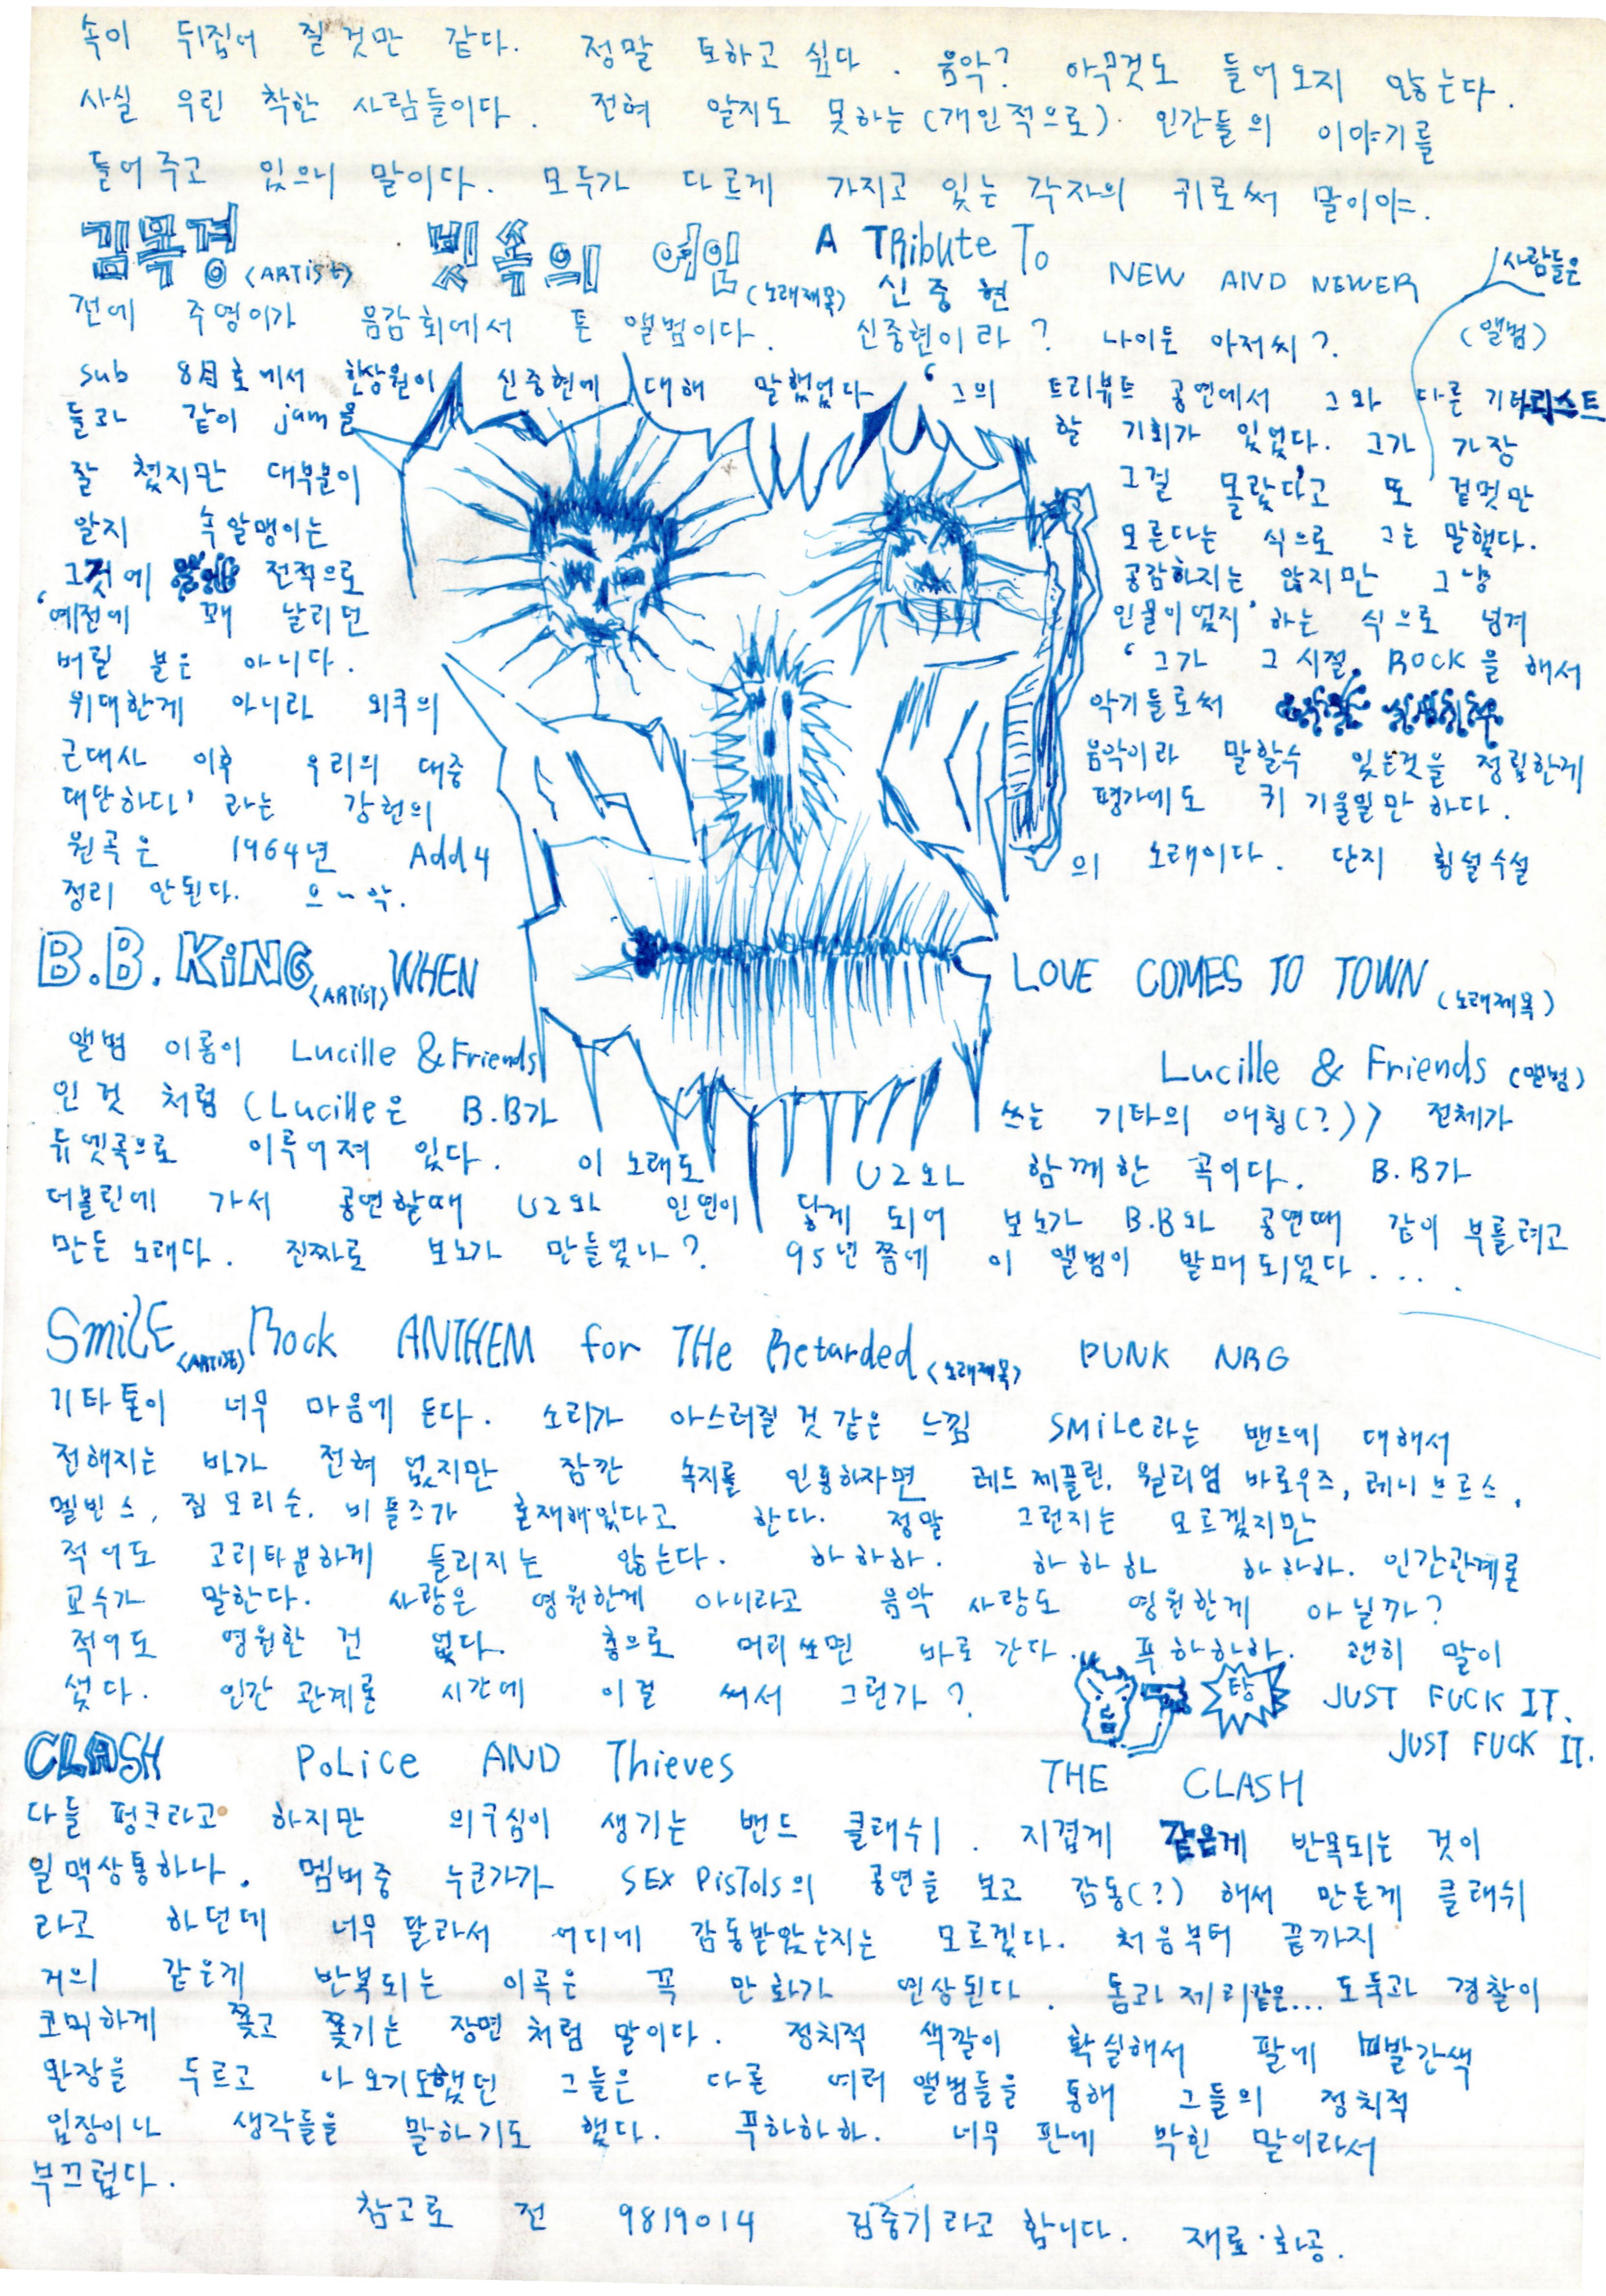 속이 뒤집어 질 것만 같다. 정말 토하고 싶다. 음악? 아무것도 들어오지 않는다.
사실 우린 착한 사람들이다. 전혀 알지도 못하는 (개인적으로). 인간들의 이야기를
들어주고 있으니 말이다. 모두가 다르게 가지고 있는 각자의 귀로써 말이야.
김목경 (ARTIST) 빗속의 여인 (노래제목) A TRibute To 신중현 NEW AND NEWER (앨범)
전에 주영이가 음감회에서 튼 앨범이다. 신중현이라? 나이든 아저씨?
sub 8月호에서 한상원이 신중현에 대해 말했었다 '그의 트리뷰트 공연에서 그와 다른 기타리스트
들과 같이 jam을 할 기회가 있었다. 그가 가장
잘 쳤지만 대부분이 사람들은 그걸 몰랐다'고 또 겉멋만
알지 속알맹이는 모른다는 식으로 그는 말했다.
그것에 전적으로 공감하지는 않지만 그냥
'예전에 꽤 날리던 인물이었지' 하는 식으로 넘겨
버릴 분은 아니다. '그가 그 시절 ROCK을 해서
위대한게 아니라 외국의 악기들로써
근대사 이후 우리의 대중 음악이라 말할수 있는것을 정립한게
대단하다' 라는 강헌의 평가에도 귀 기울일만 하다.
원곡은 1964년 Add4 의 노래이다. 단지 횡설수설
정리 안된다. 으~악.
B.B. KiNG (ARTIST) WHEN LOVE COMES TO TOWN (노래제목)
Lucille & Friends (앨범)
앨범 이름이 Lucille & Friends
인 것 처럼 (Lucille은 B.B가 쓰는 기타의 애칭(?)) 전체가
듀엣곡으로 이루어져 있다. 이 노래도 U2와 함께한 곡이다. B.B가
더블린에 가서 공연할때 U2와 인연이 닿게 되어 보노가 B.B와 공연때 같이 부를려고
만든 노래다. 진짜로 보노가 만들었나? 95년쯤에 이 앨범이 발매되었다....
SmiLE (ARTIST) Rock ANTHEM for THe Retarded (노래제목) PUNK NRG
기타톤이 너무 마음에 든다. 소리가 아스러질 것 같은 느낌 SMiLe라는 밴드에 대해서
전해지는 바가 전혀 없지만 잠깐 속지를 인용하자면 레드제플린, 윌리엄 바로우즈, 레니 브르스,
멜빈스, 짐 모리슨, 비틀즈가 혼재해있다고 한다. 정말 그런지는 모르겠지만
적어도 고리타분하게 들리지는 않는다. 하하하. 하하하 하하하. 인간관계론
교수가 말한다. 사랑은 영원한게 아니라고 음악 사랑도 영원한게 아닐까?
적어도 영원한 건 없다. 총으로 머리 쏘면 바로 간다. 푸하하하. 괜히 말이
샜다. 인간 관계론 시간에 이걸 써서 그런가? 탕 JUST FUCK IT.
JUST FUCK IT.
CLASH PoLice AND Thieves THE CLASH
다들 펑크라고 하지만 의구심이 생기는 밴드 클래쉬. 지겹게 같은게 반복되는 것이
일맥상통하나. 멤버중 누군가가 SEX PisTols의 공연을 보고 감동(?) 해서 만든게 클래쉬
라고 하던데 너무 달라서 어디에 감동받았는지는 모르겠다. 처음부터 끝까지
거의 같은게 반복되는 이곡은 꼭 만화가 연상된다. 톰과 제리같은... 도둑과 경찰이
코믹하게 쫓고 쫓기는 장면 처럼 말이다. 정치적 색깔이 확실해서 팔에 빨간색
완장을 두르고 나오기도했던 그들은 다른 여러 앨범들을 통해 그들의 정치적
입장이나 생각들을 말하기도 했다. 푸하하하. 너무 판에 박힌 말이라서
부끄럽다.
참고로 전 9819014 김중기라고 합니다. 재료·화공.